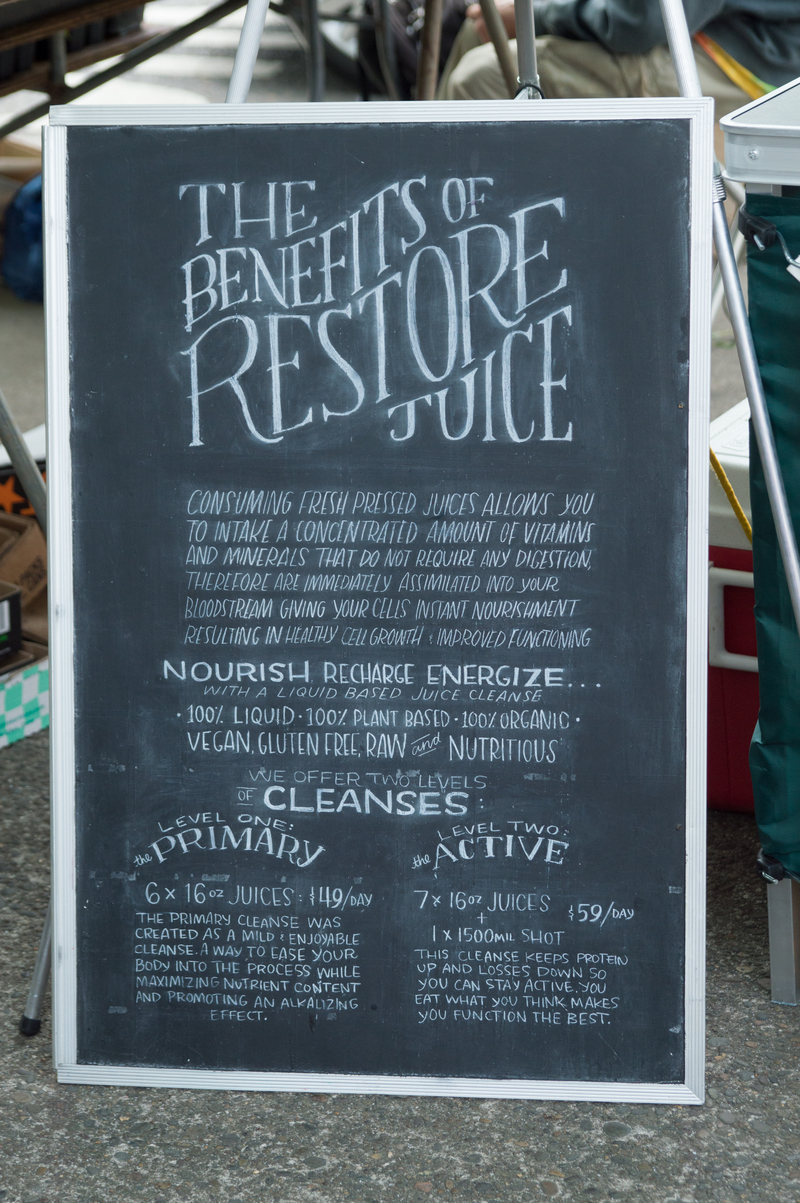 THE
BENEFITS OF
RESTORE
JUICE
CONSUMING FRESH PRESSED JUICES ALLOWS YOU
TO INTAKE A CONCENTRATED AMOUNT OF VITAMINS
AND MINERALS THAT DO NOT REQUIRE ANY DIGESTION,
THEREFORE ARE IMMEDIATELY ASSIMILATED INTO YOUR
BLOODSTREAM GIVING YOUR CELLS INSTANT NOURISHMENT
RESULTING IN HEALTHY CELL GROWTH & IMPROVED FUNCTIONING
NOURISH RECHARGE ENERGIZE...
WITH A LIQUID BASED JUICE CLEANSE
· 100% LIQUID · 100% PLANT BASED · 100% ORGANIC ·
VEGAN, GLUTEN FREE, RAW and NUTRITIOUS
WE OFFER TWO LEVELS
OF CLEANSES:
LEVEL ONE:
the PRIMARY
6 x 16oz JUICES: $49/DAY
THE PRIMARY CLEANSE WAS
CREATED AS A MILD & ENJOYABLE
CLEANSE. A WAY TO EASE YOUR
BODY INTO THE PROCESS WHILE
MAXIMIZING NUTRIENT CONTENT
AND PROMOTING AN ALKALIZING
EFFECT.
LEVEL TWO:
the ACTIVE
7 x 16oz JUICES
+
$59/DAY
1 x 1500MIL SHOT
THIS CLEANSE KEEPS PROTEIN
UP AND LOSSES DOWN SO
YOU CAN STAY ACTIVE. YOU
EAT WHAT YOU THINK MAKES
YOU FUNCTION THE BEST.